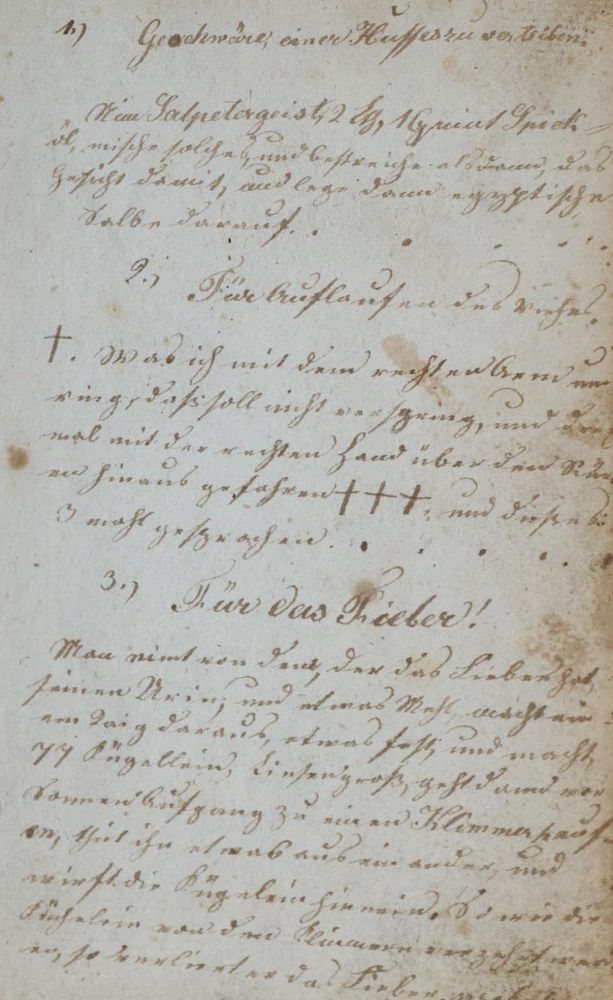 1.) Geschwäre, einer Huffes zu vertreiben:
Nim Salpetergeist, 2 ℔, 1 Quint Spick=
öl, mische solches, und bestreiche alsdann, das
Gesicht damit, und lege dann egyptische
Salbe darauf.
2.) Für Auflaufen des Viehes.
†. Was ich mit dem rechten Arm um
ring, das soll nicht verspring, und drei
mal mit der rechten Hand über den Rück
en hinaus gefahren † † †, und dieses
3 mahl gesprochen.
3.) Für das Fieber!
Man nimt von dem, der das Fieber hat,
seinen Urin, und etwas Mehl, macht ein
en Taig daraus, etwas fest, und macht
77 Kügellein, Linsengroß, geht damit vor
Sonnen Aufgang zu einen Klimmerhauf
en, thut ihn etwas aus ein ander, und
wirft die Kügelein hinnein. So wie die
Küchelein von den Klimmern verzehrt wer
en, so verliert er das Fieber